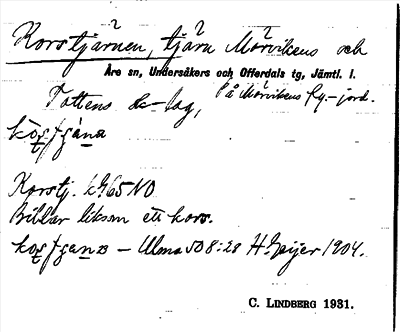 Korstjärnen, tjärn Mörvikens och
Åre sn, Undersåkers och Offerdals tg, Jämtl. l.
Tottens sk-lag, På Mörvikens by.-jord.
Korstj. k9:65 NO
Bildar liksom ett kors.
– Ulma 50 8:28 H. Geijer 1904.
C. LINDBERG 1931.